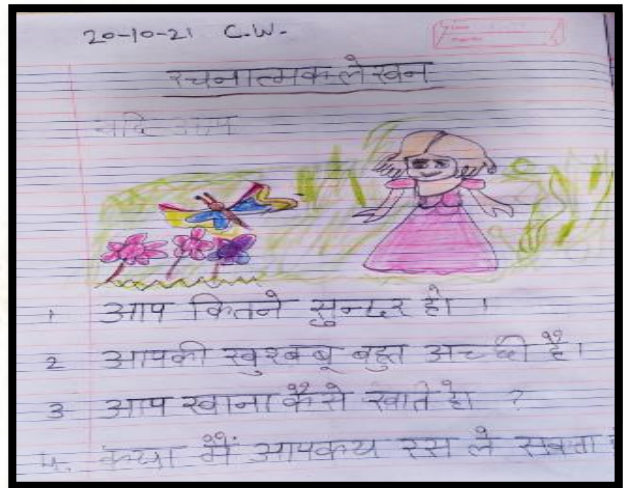 20-10-21 C.W.
रचनात्मक लेखन
यदि आप
1 आप कितने सुन्दर हो ।
2 आपकी खुशबबू बहुत अच्छी है।
3 आप खाना कैसे खाते हो ?
4. क्या मैं आपकय रस ले सकता